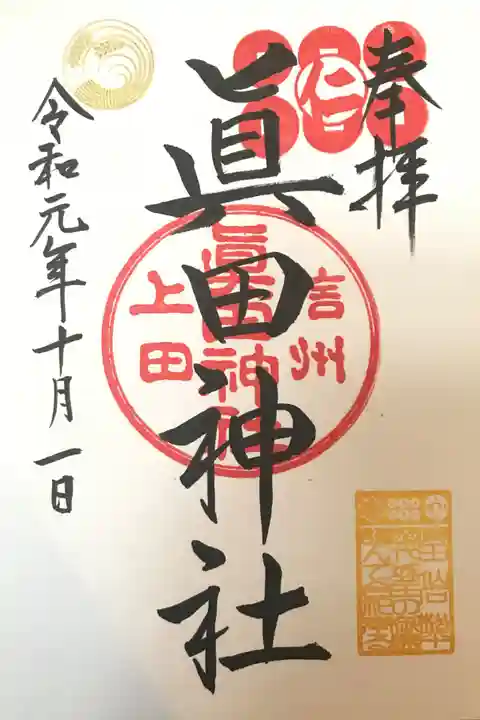 奉拝
眞田神社
信州
眞田神社
上田
令和元年十月一日